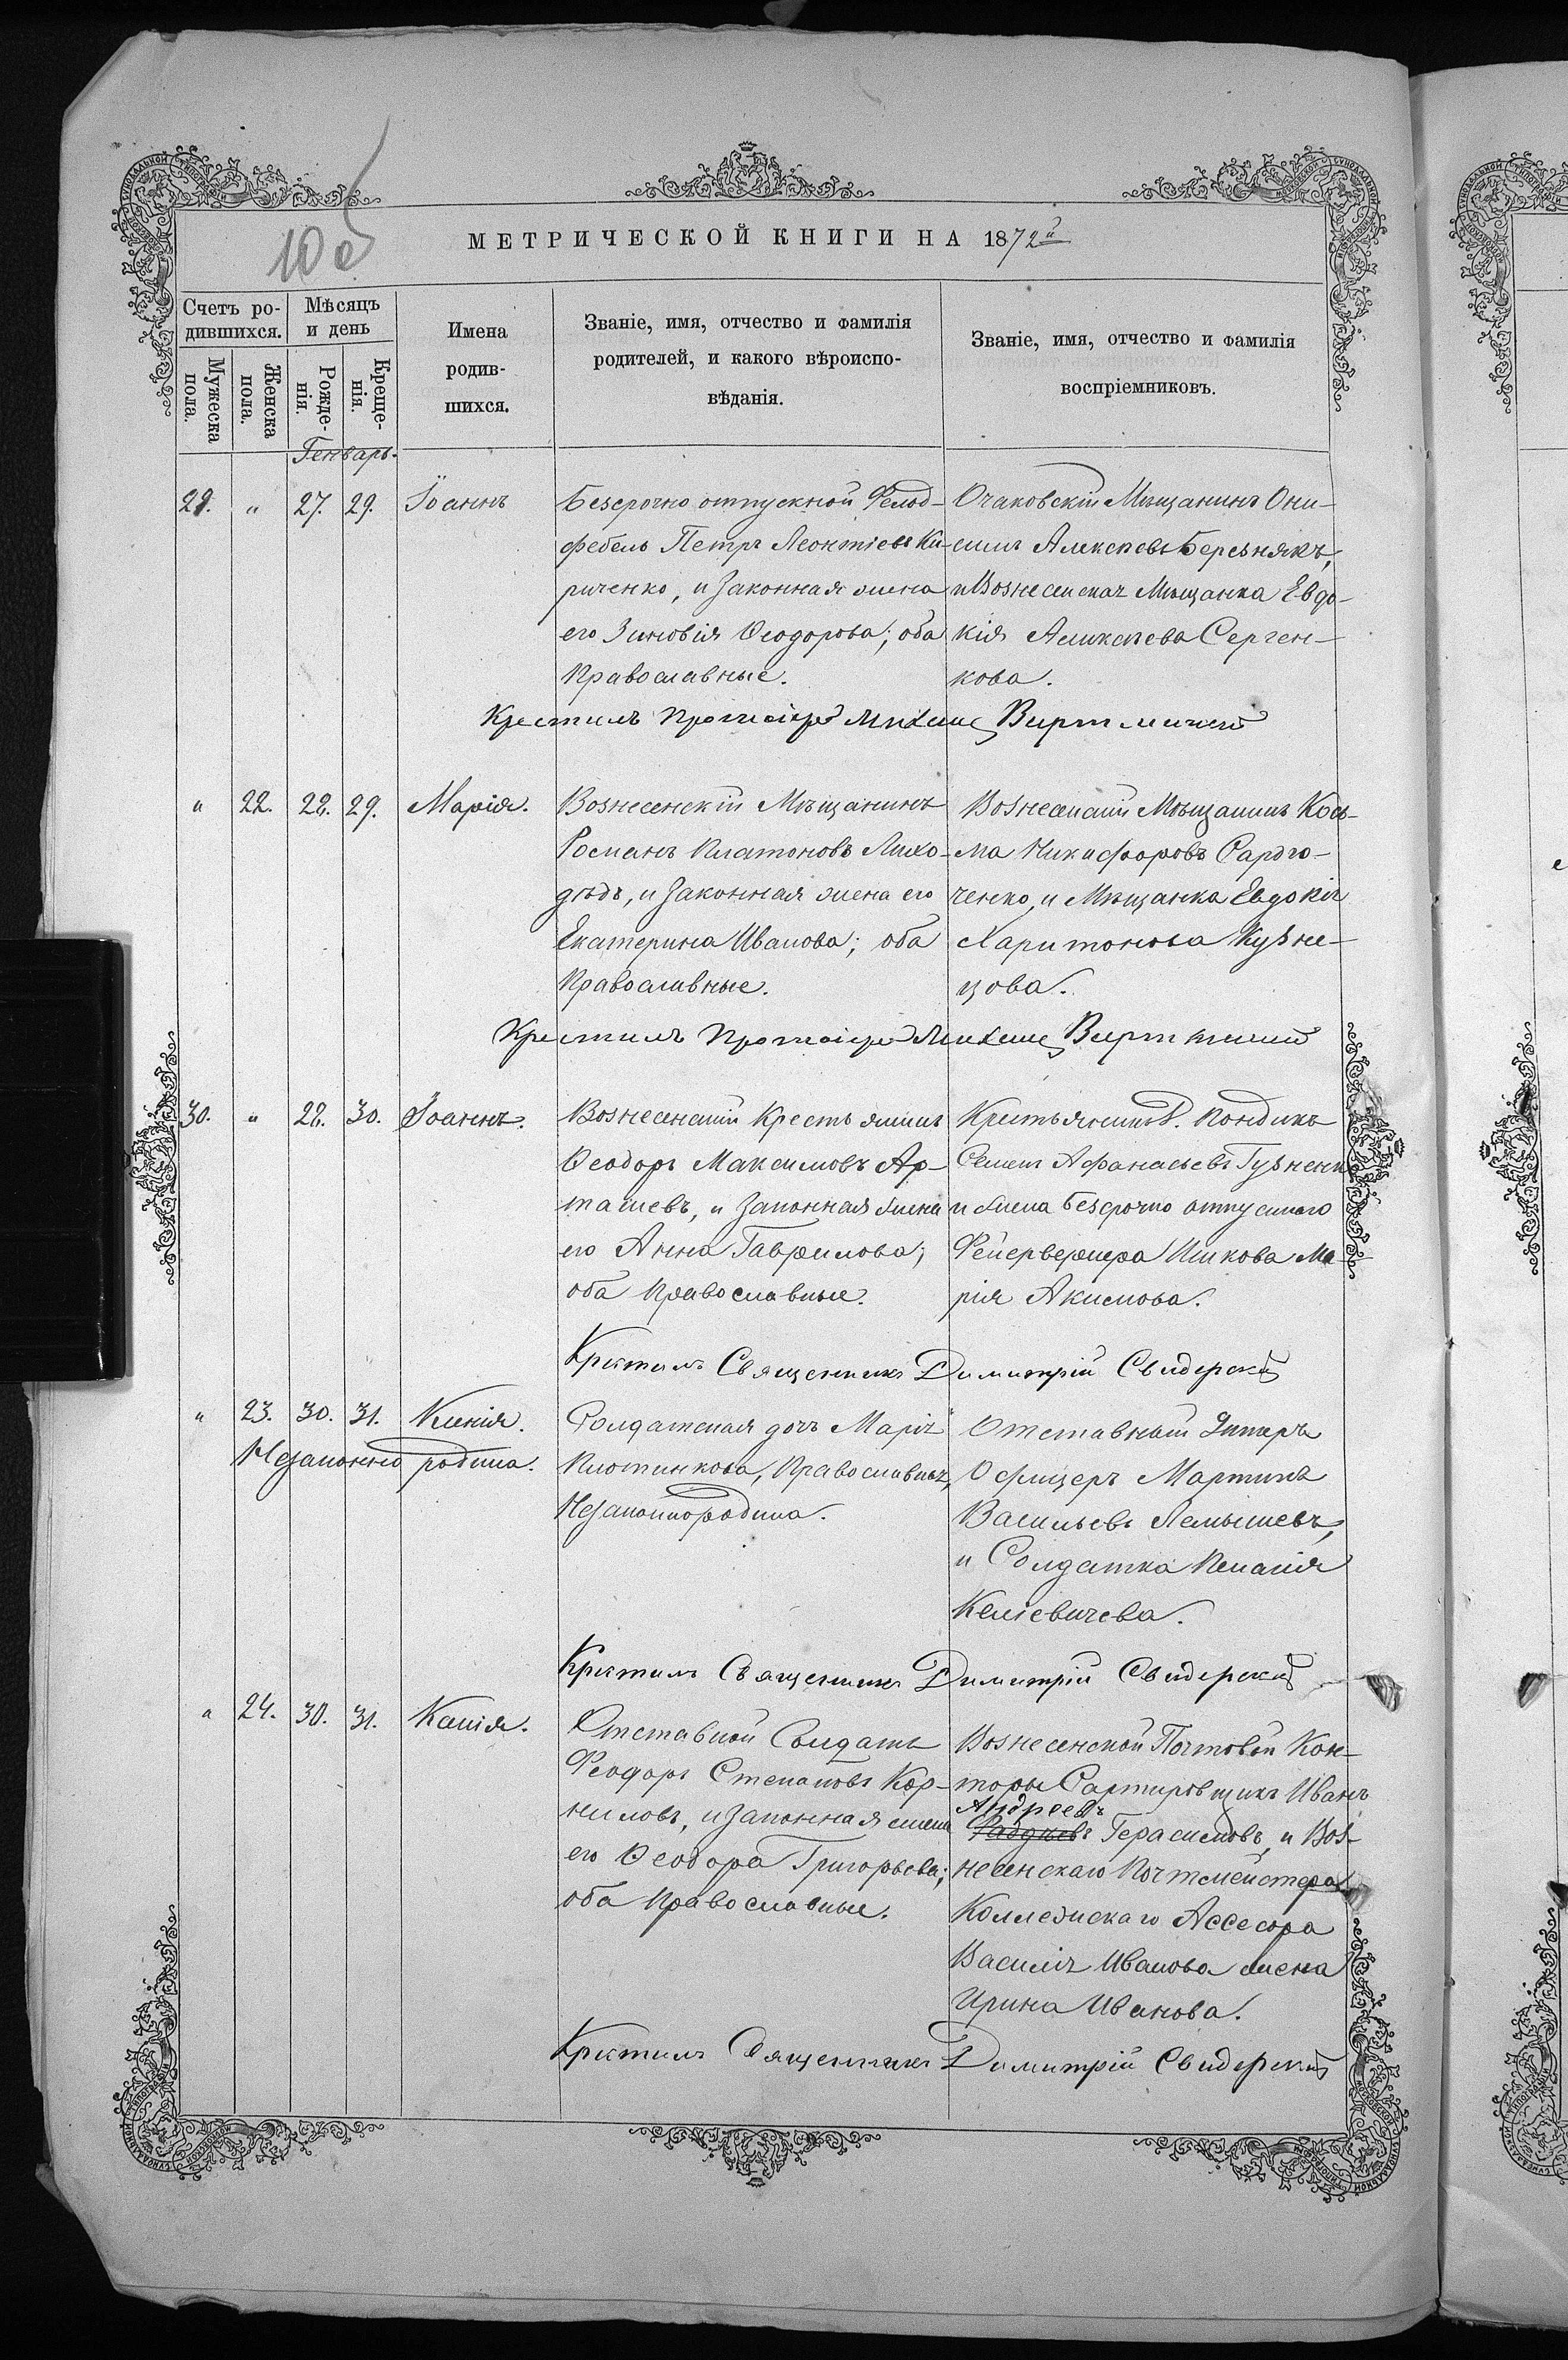 10 об
МЕТРИЧЕСКОЙ КНИГИ НА 1872й
Счетъ ро-
дившихся.
Мѣсяцъ
и день
Мужеска пола.
Женска пола.
Рожде-нія.
Креще-нія.
Имена
родив-
шихся.
Званіе, имя, отчество и фамилія
родителей, и какого вѣроиспо-
вѣданія.
Званіе, имя, отчество и фамилія
воспріемниковъ.
Генварь.
29. „ 27. 29. Іоаннъ
Безсрочно отпускной Фельд-
фебель Петръ Леонтіевъ Ки-
риченко, и законная жена
его Зиновія Ѳеодорова; оба
Православные.
Очаковскій Мѣщанинъ Они-
симъ Алексѣевъ Березнякъ,
и Вознесенская Мѣщанка Евдо-
кія Алексѣева Серген-
кова.
Крестилъ Протоіерей Михаилъ
„ 22. 28. 29. Марія.
Вознесенскій Мѣщанинъ
Романъ Платоновъ Лихо-
дѣдъ, и законная жена его
Екатерина Иванова; оба
Православные.
Вознесенскій Мѣщанинъ Кось-
ма Никифоровъ
ченко, и Мѣщанка Евдокія
Харитонова Кузне-
цова.
Крестилъ Протоіерей Михаилъ
30. „ 28. 30. Іоаннъ.
Вознесенскій Крестьянинъ
Ѳеодоръ Максимовъ Ар-
ташевъ, и законная жена
его Анна Гаврилова;
оба Православные.
Крестьянинъ
Семенъ Афанасьевъ
и жена безсрочно отпускнаго
Фейерверкера Ма-
рія Акимова.
Крестилъ Священникъ Димитрій Свидерскій
„ 23. 30. 31. Ксенія.
Незаконно родила.
Солдатская дочь Марія
Плотникова, Православная,
Незаконнородила.
Отставный Унтеръ
Офицеръ Мартинъ
Васильевъ Лемышевъ,
и Солдатка Пелагія
Келіевичева.
Крестилъ Священникъ Димитрій Свидерскій
„ 24. 30. 31. Ксенія.
Отставной Солдатъ
Феодоръ Степановъ Кор-
ниловъ, и законная жена
его Ѳеодора Григорьева;
оба Православные.
Вознесенской Почтовой Кон-
торы Сартировщикъ Иванъ
Андреевъ
Герасимовъ, и Воз-
несенскаго Почтмейстера
Коллежскаго Ассесора
Василія Иванова жена
Ирина Иванова.
Крестилъ Священникъ Димитрій Свидерскій